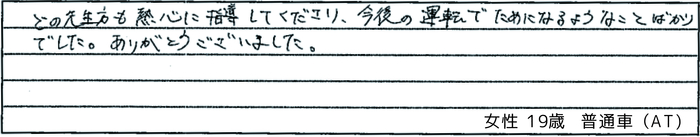 どの先生方も熱心に指導してくださり、今後の運転でためになるようなことばかり
でした。ありがとうございました。
女性 19歳 普通車（AT）